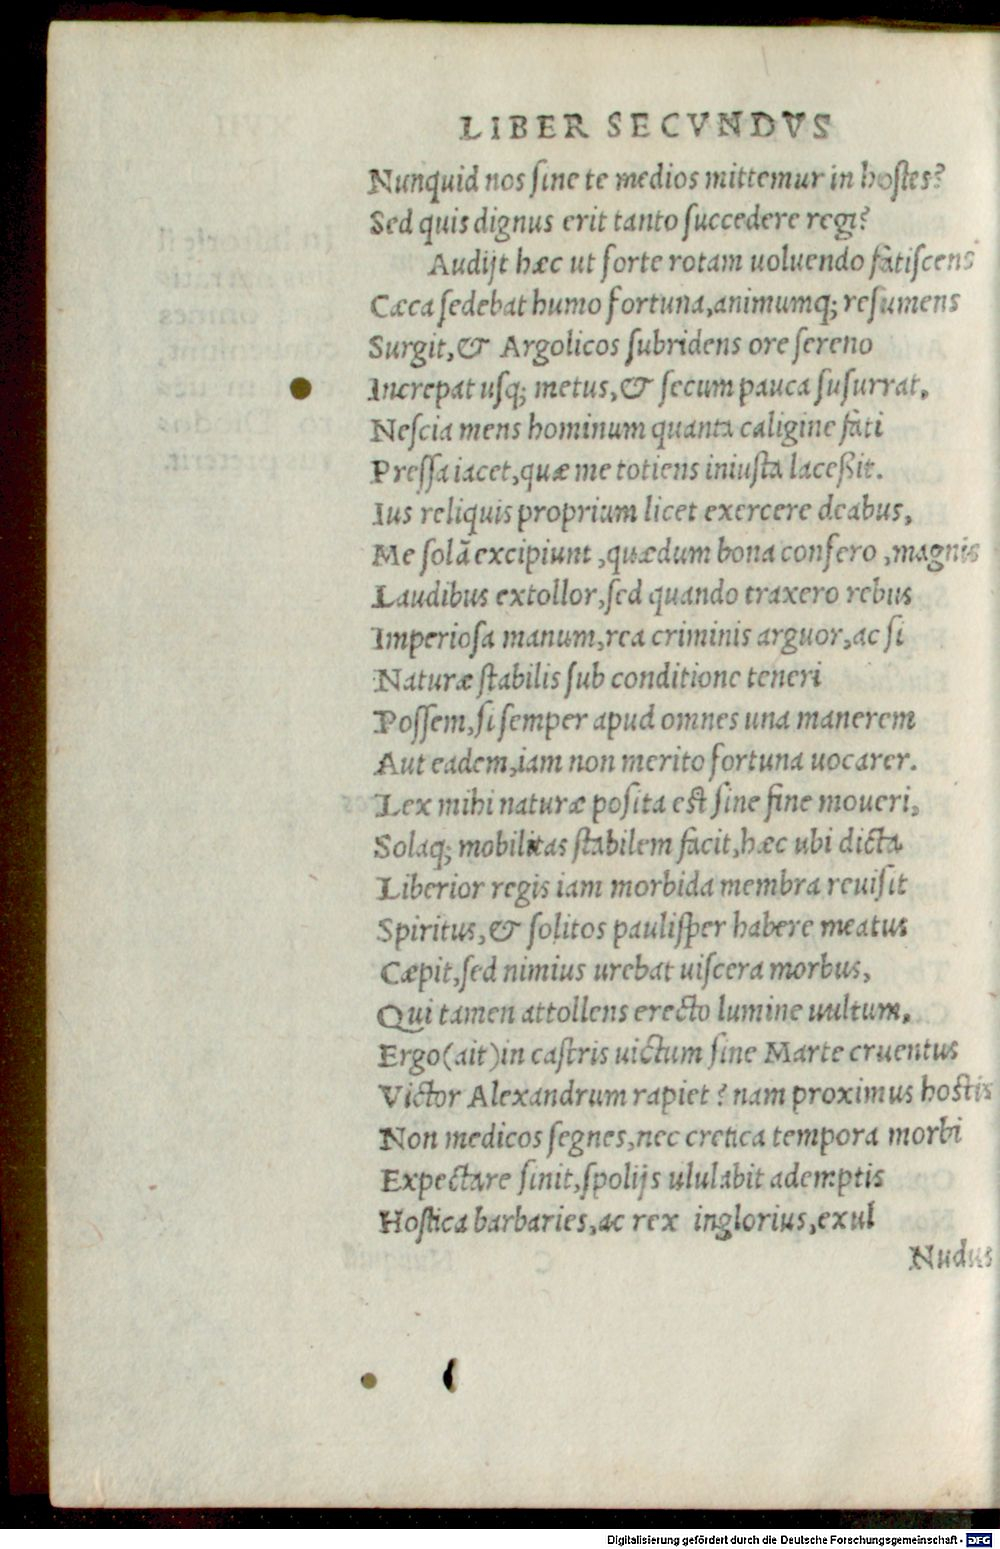 LIBER SECVNDVS
Nunquid nos sine te medios mittemur in hostes?
Sed quis dignus erit tanto succedere regi?
Audijt hæc ut forte rotam uoluendo fatiscens
Cæca sedebat humo fortuna, animumq; resumens
Surgit, & Argolicos subridens ore sereno
Increpat usq; metus, & secum pauca susurrat,
Nescia mens hominum quanta caligine fati
Pressa iacet, quæ me totiens iniusta laceßit.
Ius reliquis proprium licet exercere deabus,
Me solã excipiunt, quædum bona confero, magnis
Laudibus extollor, sed quando traxero rebus
Imperiosa manum, rea criminis arguor, ac si
Naturæ stabilis sub conditione teneri
Possem, si semper apud omnes una manerem
Aut eadem, iam non merito fortuna uocarer.
Lex mihi naturæ posita est sine fine moueri,
Solaq; mobilitas stabilem facit, hæc ubi dicta
Liberior regis iam morbida membra reuisit
Spiritus, & solitos paulisper habere meatus
Cæpit, sed nimius urebat uiscera morbus,
Qui tamen attollens erecto lumine uultum,
Ergo (ait) in castris uictum sine Marte cruentus
Victor Alexandrum rapiet? nam proximus hostis
Non medicos segnes, nec cretica tempora morbi
Expectare sinit, spolijs ululabit ademptis
Hostica barbaries, ac rex inglorius, exul
Nudus
Digitalisierung gefördert durch die Deutsche Forschungsgemeinschaft - DFG